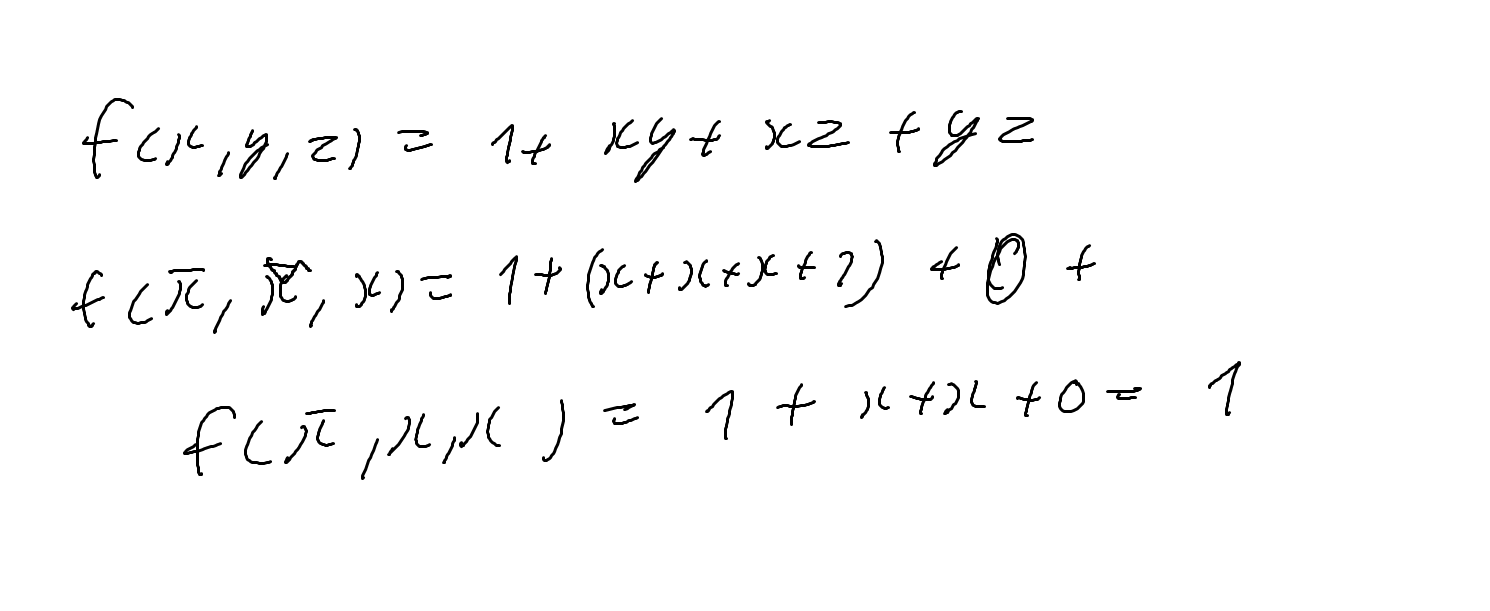 f(x,y,z) = 1+ xy+ xz +yz
f(x̄, x̄, x)= 1+(x+x+x+1) + 0 +
f(x̄,x,x) = 1 + x+x +0= 1